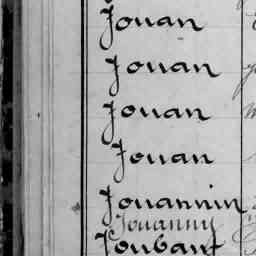 Jouan
Jouan
Jouan
Jouan
Jouannin
Jouanny
Joubant